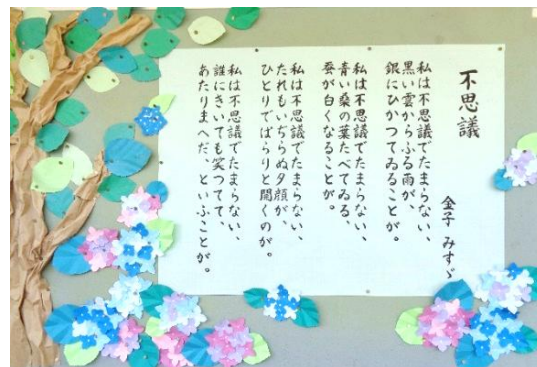 不思議
金子 みすゞ
私は不思議でたまらない、
黒い雲からふる雨が、
銀にひかつてゐることが。
私は不思議でたまらない、
青い桑の葉たべてゐる、
蚕が白くなることが。
私は不思議でたまらない、
たれもいぢらぬ夕顔が、
ひとりでぱらりと開くのが。
私は不思議でたまらない、
誰にきいても笑つてて、
あたりまへだ、といふことが。